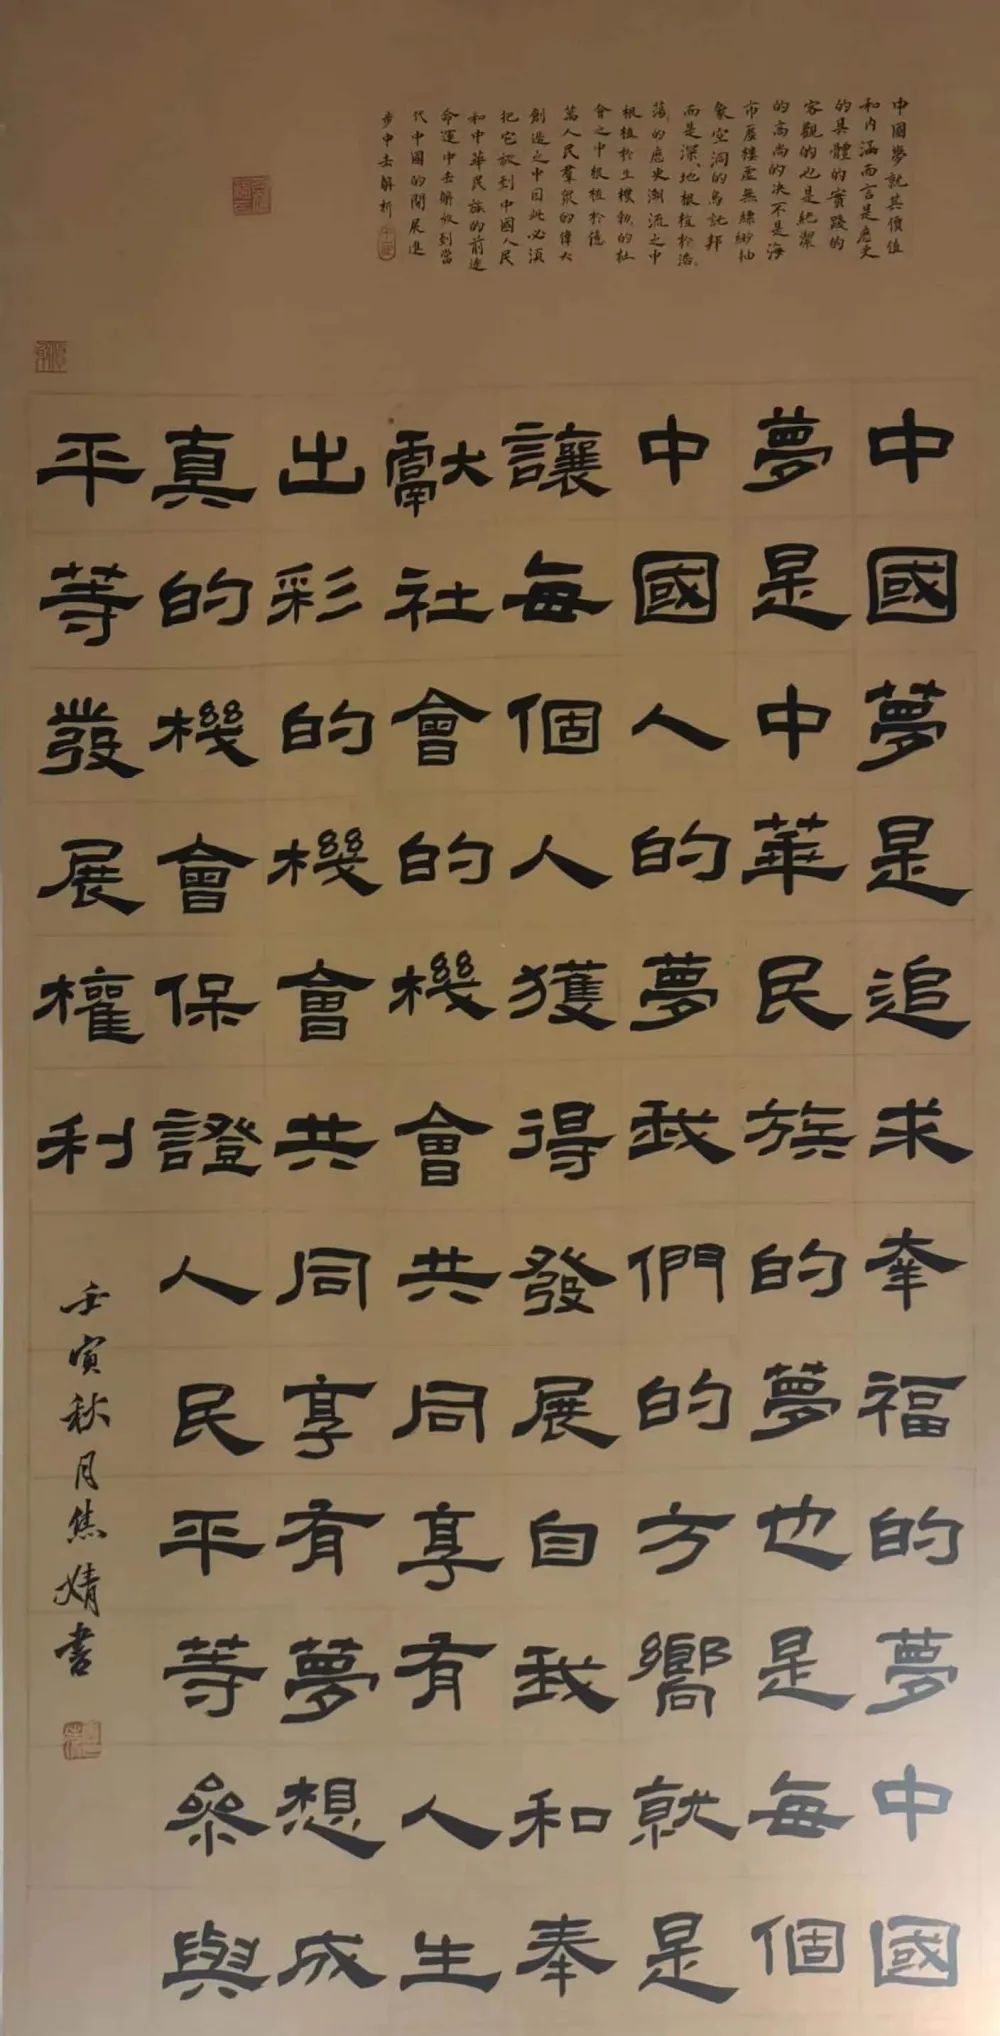 中國夢就其價值
和内涵而言是歷史
的具體的實踐的
客觀的也是純潔
的高尚的决不是海
市蜃樓虛無縹緲抽
象空洞的烏託邦
而是深地根植於浩
蕩的歷史潮流之中
根植於生勃的社
會之中根植於億
萬人民羣眾的偉大
創造之中因此必須
把它放到中國人民
和中華民族的前途
命運中去解放到當
代中國的開展進
步中去解析
中國夢是追求幸福的夢中國
夢是中華民族的夢也是每個
中國人的夢我們的方嚮就是
讓每個人獲得發展自我和奉
獻社會的機會共同享有人生
出彩的機會共同享有夢想成
真的機會保證人民平等參與
平等發展權利
壬寅秋月焦婧書